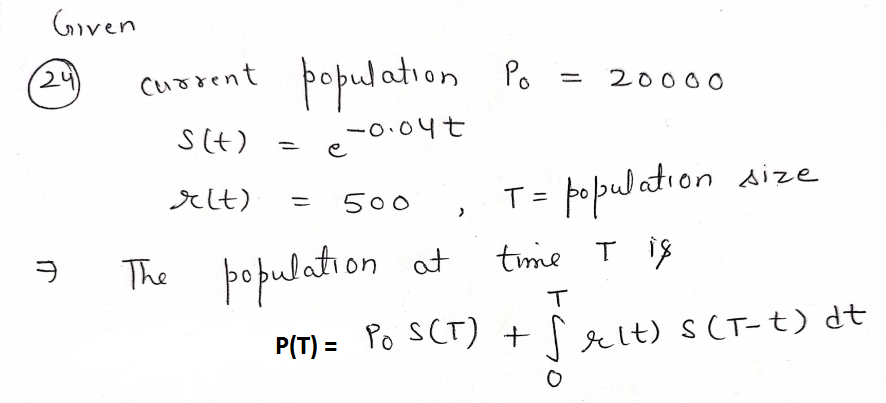 Given
(24) current population P₀ = 20000
S(t) = e^{-0.04t}
r(t) = 500 , T = population size
⇒ The population at time T is
P(T) = P₀ S(T) + ∫₀ᵀ r(t) S(T-t) dt